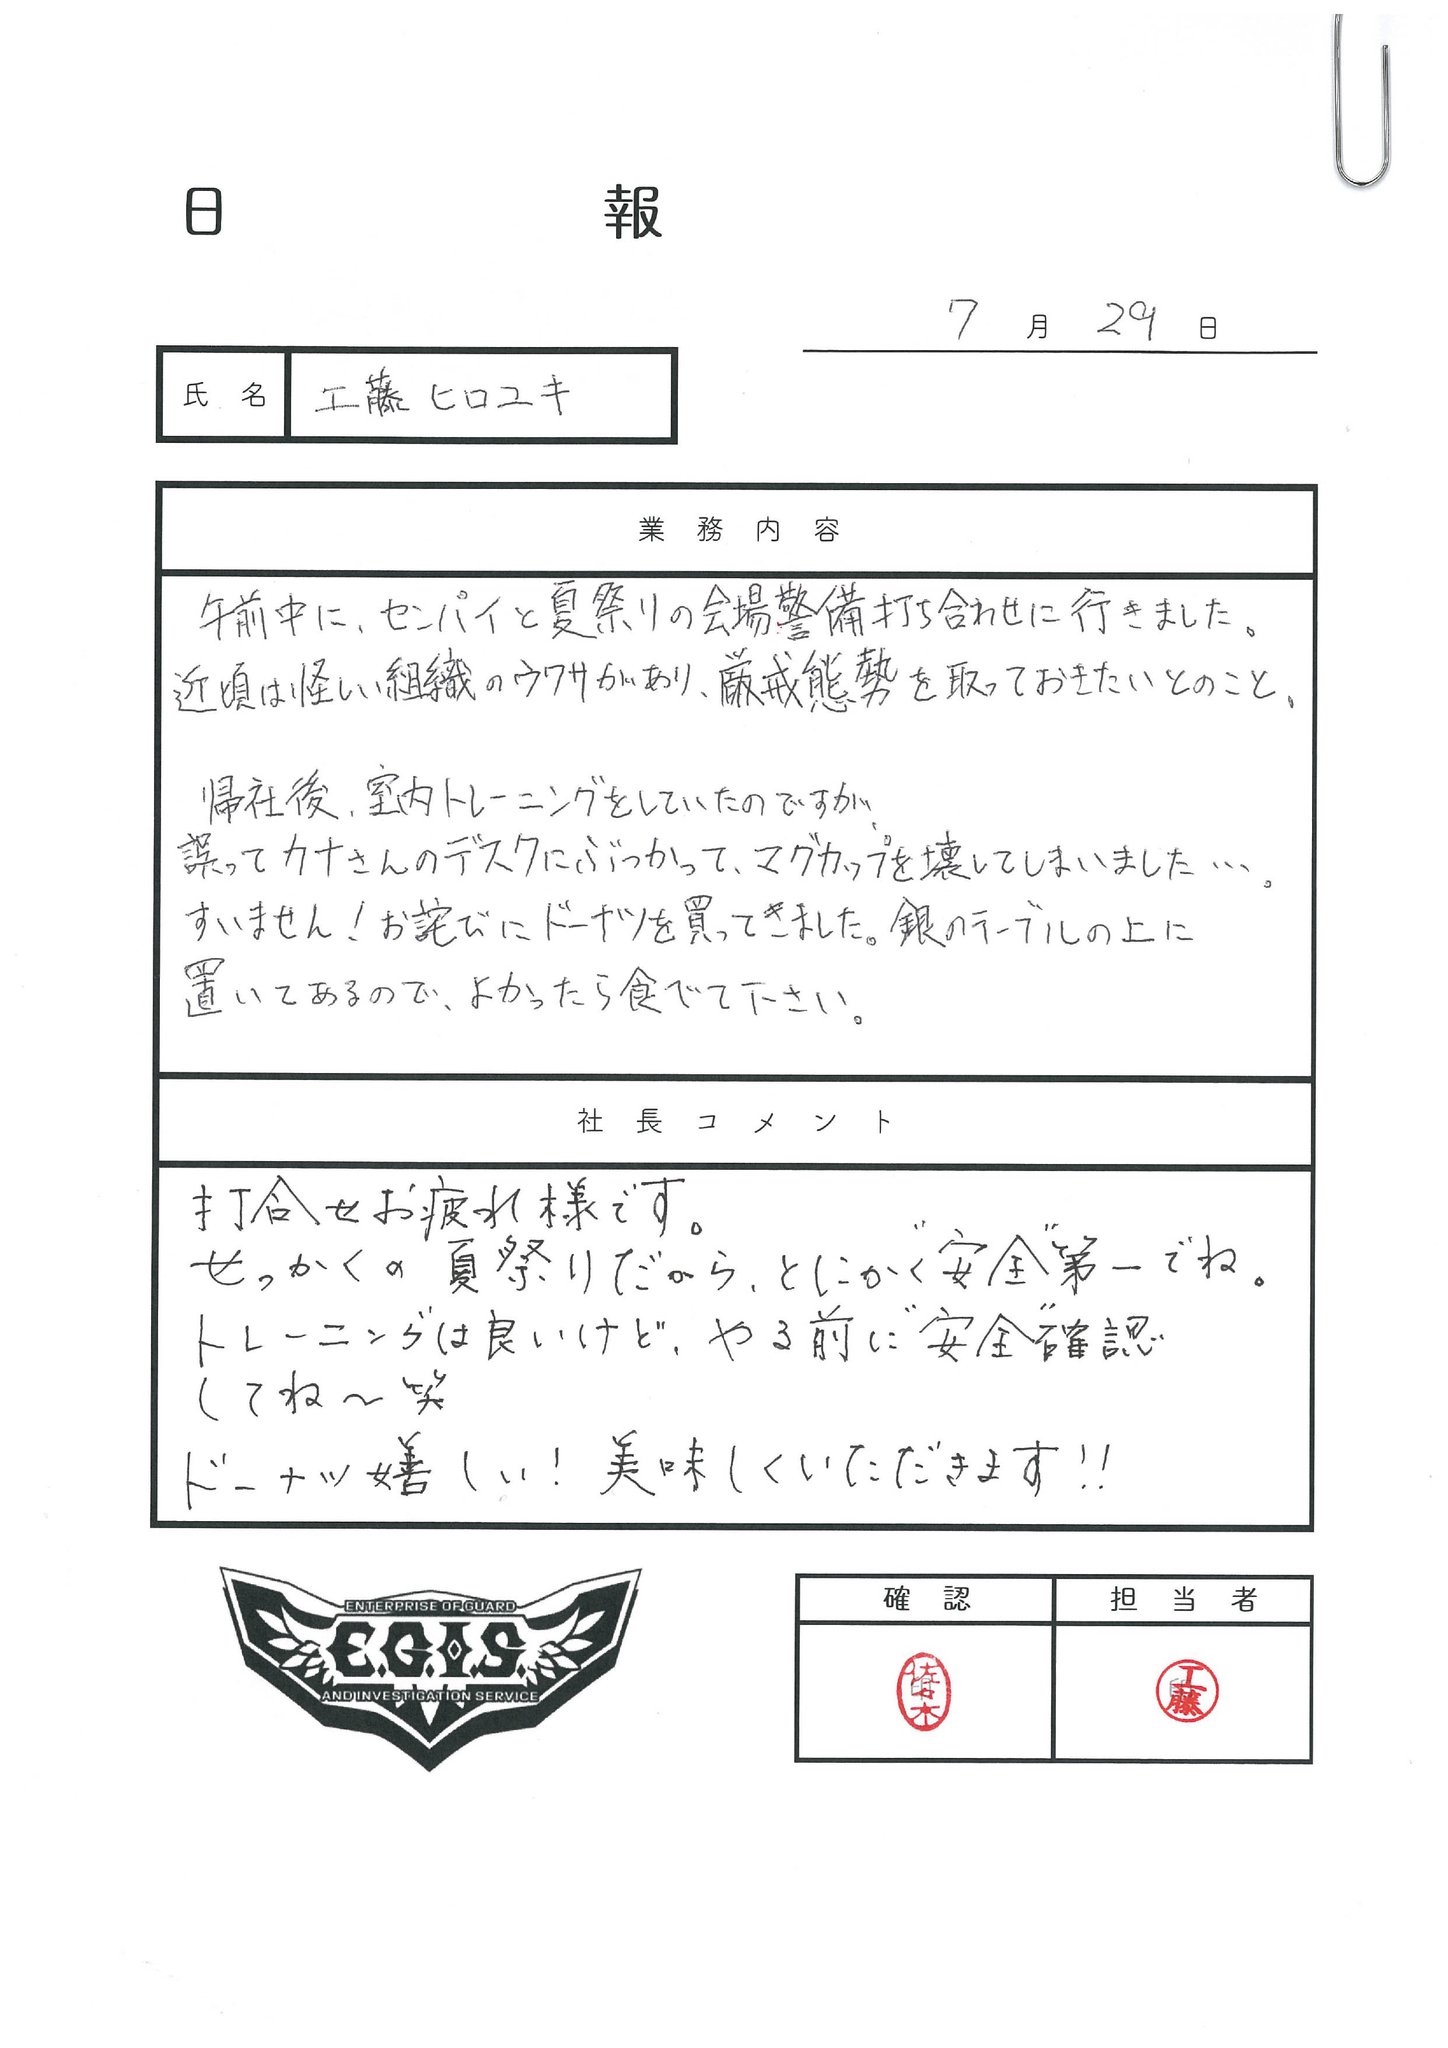 日報
7月29日
氏名 工藤ヒロユキ
業務内容
午前中に、センパイと夏祭りの会場警備打ち合わせに行きました。
近頃は怪しい組織のウワサがあり、厳戒態勢を取っておきたいとのこと、
帰社後、室内トレーニングをしていたのですが、
誤ってカナさんのデスクにぶつかって、マグカップを壊してしまいました…。
すいません!お詫びにドーナツを買ってきました。銀のテーブルの上に
置いてあるので、よかったら食べて下さい。
社長コメント
打合せお疲れ様です。
せっかくの夏祭りだから、とにかく"安全"第一でね。
トレーニングは良いけど、やる前に"安全"確認
してね〜笑
ドーナツ嬉しい!美味しくいただきます!!
ENTERPRISE OF GUARD
E.G.I.S.
AND INVESTIGATION SERVICE
確認 担当者
佐々木 工藤